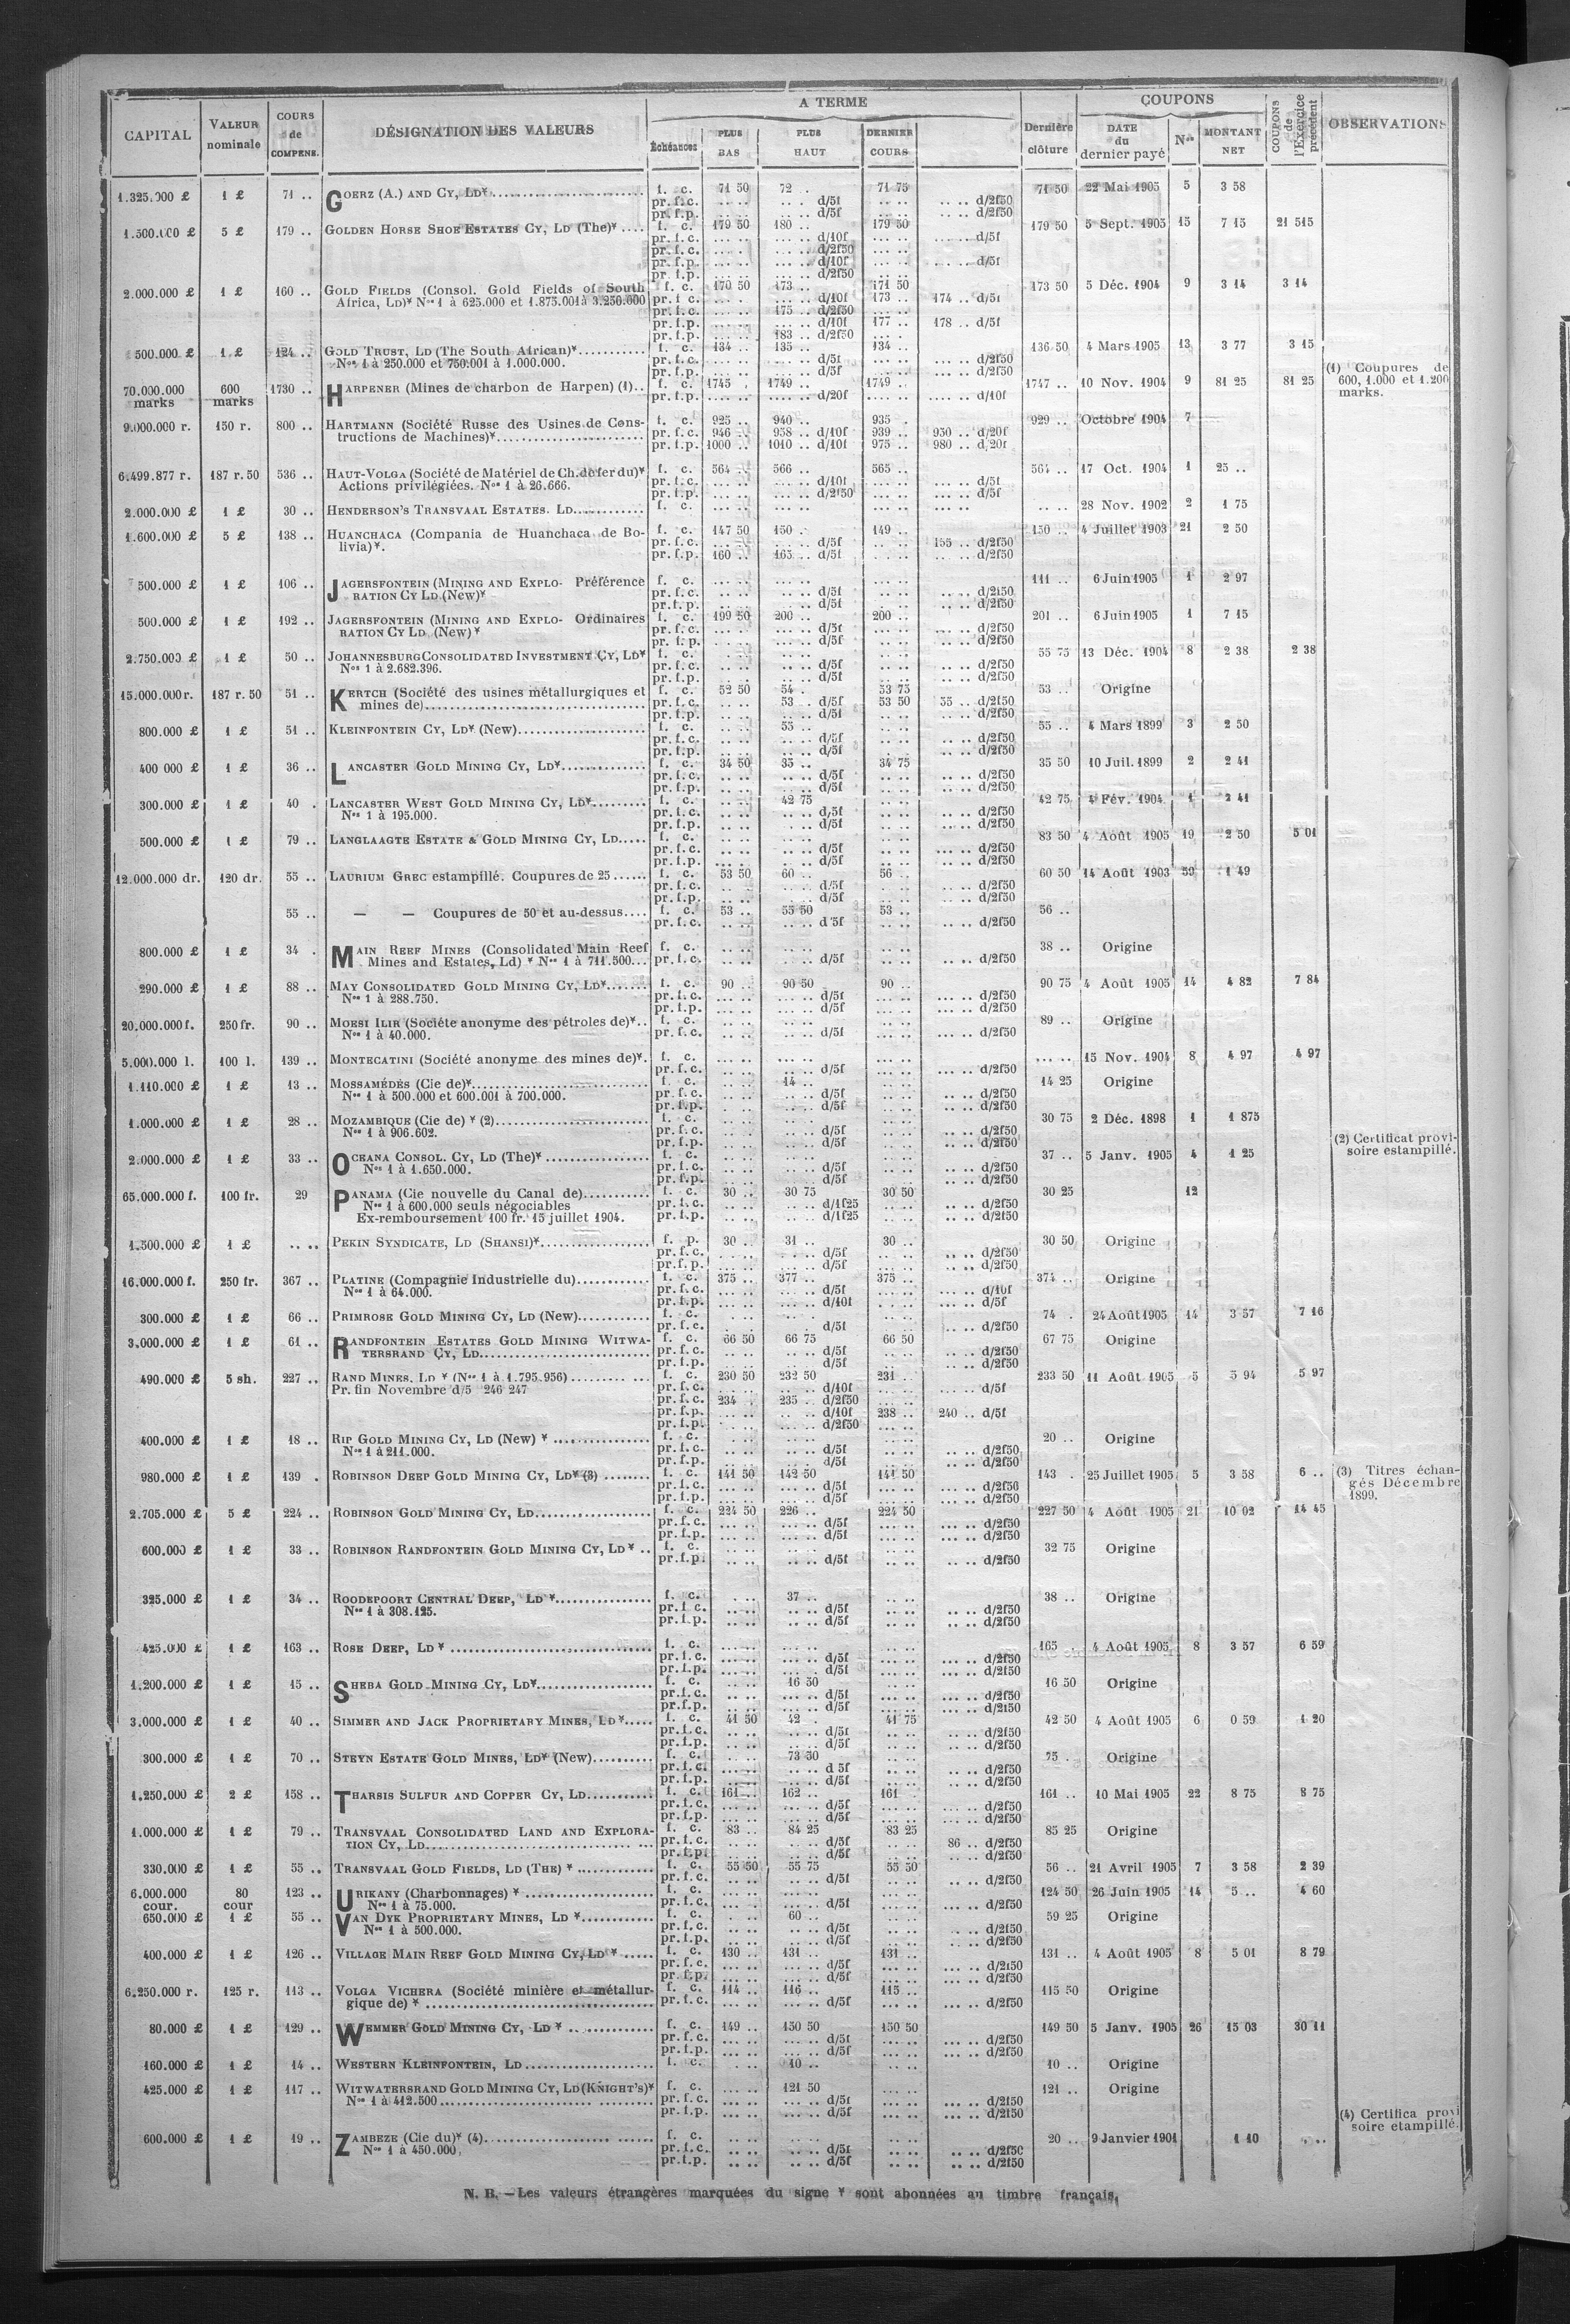 CAPITAL VALEUR nominale COURS de COMPENS. DÉSIGNATION DES VALEURS A TERME Échéances PLUS BAS PLUS HAUT DERNIER COURS Dernière clôture COUPONS DATE du dernier payé Nos MONTANT NET COUPONS de l'Exercice précédent OBSERVATIONS
1.325.000 £ 1 £ 71 .. GOERZ (A.) AND CY, LD¥ f. c. 71 50 72 . 71 75 71 50 22 Mai 1905 5 3 58
pr.f.c. .. .. .. . d/5f .. .. .. .. d/2f50
pr.f.p. .. .. .. .. d/5f .. .. .. .. d/2f50
1.500.000 £ 5 £ 179 .. GOLDEN HORSE SHOE ESTATES CY, LD (The)¥ .... f. c. 179 50 180 .. 179 50 179 50 5 Sept. 1905 15 7 15 21 515
pr.f.c. d/10f d/5f
pr.f.c. d/2f50
pr.f.p. d/10f d/5f
pr.f.p. d/2f50
2.000.000 £ 1 £ 160 .. GOLD FIELDS (Consol. Gold Fields of South f. c. 170 50 173 .. 171 50 173 50 5 Déc. 1904 9 3 14 3 14
Africa, LD)¥ Nos 1 à 625.000 et 1.875.001 à 3.250.000 pr.f.c. d/10f 173 .. 174 .. d/5f
pr.f.c. 175 .. d/2f50
pr.f.p. d/10f 177 .. 178 .. d/5f
pr.f.p. 183 .. d/2f50
500.000 £ 1 £ 124 .. GOLD TRUST, LD (The South African)¥ f. c. 134 .. 135 .. 134 . 136 50 4 Mars 1905 13 3 77 3 15
Nos 1 à 250.000 et 750.001 à 1.000.000. pr.f.c. d/5f d/2f50
pr.f.p. d/5f d/2f50
70.000.000 marks 600 marks 1730 .. HARPENER (Mines de charbon de Harpen) (1).. f. c. 1745 . 1749 .. 1749 .. 1747 .. 10 Nov. 1904 9 81 25 81 25 (1) Coupures de 600, 1.000 et 1.200 marks.
pr.f.p. d/20f d/10f
9.000.000 r. 150 r. 800 .. HARTMANN (Société Russe des Usines de Cons- f. c. 925 .. 940 .. 935 . 929 .. Octobre 1904 7
tructions de Machines)¥ pr.f.c. 946 .. 958 .. d/10f 939 .. 950 .. d/20f
pr.f.p. 1000 .. 1010 .. d/10f 975 .. 980 .. d/20f
6.499.877 r. 187 r. 50 536 .. HAUT-VOLGA (Société de Matériel de Ch. de fer du)¥ f. c. 564 .. 566 .. 565 .. 564 .. 17 Oct. 1904 1 25 ..
Actions privilégiées. Nos 1 à 26.666. pr.f.c. d/10f d/5f
pr.f.p. d/2f50 d/5f
2.000.000 £ 1 £ 30 .. HENDERSON'S TRANSVAAL ESTATES. LD f. c. 28 Nov. 1902 2 1 75
1.600.000 £ 5 £ 138 .. HUANCHACA (Compania de Huanchaca de Bo- f. c. 147 50 150 . 149 .. 150 .. 4 Juillet 1903 21 2 50
livia)¥. pr.f.c. d/5f 155 .. d/2f50
pr.f.p. 160 .. 165 .. d/5f d/2f50
500.000 £ 1 £ 106 .. JAGERSFONTEIN (MINING AND EXPLO- Préférence f. c. 111 .. 6 Juin 1905 1 2 97
RATION CY LD (New)¥ pr.f.c. d/5f d/2f50
pr.f.p. d/5f d/2f50
500.000 £ 1 £ 192 .. JAGERSFONTEIN (MINING AND EXPLO- Ordinaires f. c. 199 50 200 .. 200 .. 201 .. 6 Juin 1905 1 7 15
RATION CY LD. (New)¥ pr.f.c. d/5f d/2f50
pr.f.p. d/5f d/2f50
2.750.000 £ 1 £ 50 .. JOHANNESBURG CONSOLIDATED INVESTMENT CY, LD¥ f. c. 55 75 13 Déc. 1904 8 2 38 2 38
Nos 1 à 2.682.396. pr.f.c. d/5f d/2f50
pr.f.p. d/5f d/2f50
15.000.000 r. 187 r. 50 51 .. KERTCH (Société des usines métallurgiques et f. c. 52 50 54 . 53 75 53 .. Origine
mines de) pr.f.c. 53 .. d/5f 53 50 55 .. d/2f50
pr.f.p. d/5f d/2f50
800.000 £ 1 £ 51 .. KLEINFONTEIN CY, LD¥ (New) f. c. 55 .. 55 .. 4 Mars 1899 3 2 50
pr.f.c. d/5f d/2f50
pr.f.p. d/5f d/2f50
400 000 £ 1 £ 36 .. LANCASTER GOLD MINING CY, LD¥ f. c. 34 50 35 .. 34 75 35 50 10 Juil. 1899 2 2 41
pr.f.c. d/5f d/2f50
pr.f.p. d/5f d/2f50
300.000 £ 1 £ 40 . LANCASTER WEST GOLD MINING CY, LD¥ f. c. 42 75 42 75 4 Fév. 1904 1 2 41
Nos 1 à 195.000. pr.f.c. d/5f d/2f50
pr.f.p. d/5f d/2f50
500.000 £ 1 £ 79 .. LANGLAAGTE ESTATE & GOLD MINING CY, LD f. c. 83 50 4 Août 1905 19 2 50 5 01
pr.f.c. d/5f d/2f50
pr.f.p. d/5f d/2f50
12.000.000 dr. 120 dr. 55 .. LAURIUM GREC estampillé. Coupures de 25 f. c. 53 50 60 .. 56 .. 60 50 14 Août 1903 59 1 49
pr.f.c. d/5f d/2f50
pr.f.p. d/5f d/2f50
55 .. — — Coupures de 50 et au-dessus f. c. 53 .. 55 50 53 .. 56 ..
pr.f.c. d 5f d/2f50
800.000 £ 1 £ 34 . MAIN REEF MINES (Consolidated Main Reef f. c. 38 .. Origine
Mines and Estates, Ld) ¥ Nos 1 à 711.500... pr.f.c. d/5f d/2f50
290.000 £ 1 £ 88 .. MAY CONSOLIDATED GOLD MINING CY, LD¥ f. c. 90 .. 90 50 90 .. 90 75 4 Août 1905 14 4 82 7 84
Nos 1 à 288.750. pr.f.c. d/5f d/2f50
pr.f.p. d/5f d/2f50
20.000.000 f. 250 fr. 90 .. MOESI ILIR (Sociéte anonyme des pétroles de)¥.. f. c. 89 .. Origine
Nos 1 à 40.000. pr.f.c. d/5f d/2f50
5.000.000 l. 100 l. 139 .. MONTECATINI (Société anonyme des mines de)¥. f. c. 15 Nov. 1904 8 4 97 4 97
pr.f.c. d/5f d/2f50
1.110.000 £ 1 £ 13 .. MOSSAMÉDÈS (Cie de)¥ f. c. 14 .. 14 25 Origine
Nos 1 à 500.000 et 600.001 à 700.000. pr.f.c. d/5f d/2f50
pr.f.p. d/5f d/2f50
1.000.000 £ 1 £ 28 .. MOZAMBIQUE (Cie de) ¥ (2) f. c. 30 75 2 Déc. 1898 1 1 875
Nos 1 à 906.602. pr.f.c. d/5f d/2f50
pr.f.p. d/5f d/2f50 (2) Certificat provi-
soire estampillé.
2.000.000 £ 1 £ 33 .. OCEANA CONSOL. CY, LD (The)¥ f. c. 37 .. 5 Janv. 1905 4 1 25
Nos 1 à 1.650.000. pr.f.c. d/5f d/2f50
pr.f.p. d/5f d/2f50
65.000.000 f. 100 fr. 29 PANAMA (Cie nouvelle du Canal de) f. c. 30 .. 30 75 30 50 30 25 12
Nos 1 à 600.000 seuls négociables pr.f.c. d/1f25 d/2f50
Ex-remboursement 100 fr. 15 juillet 1904. pr.f.p. d/1f25 d/2f50
1.500.000 £ 1 £ .. .. PEKIN SYNDICATE, LD (SHANSI)¥ f. p. 30 .. 31 .. 30 .. 30 50 Origine
pr.f.c. d/5f d/2f50
pr.f.p. d/5f d/2f50
16.000.000 f. 250 fr. 367 .. PLATINE (Compagnie Industrielle du) f. c. 375 .. 377 .. 375 .. 374 .. Origine
Nos 1 à 64.000. pr.f.c. d/5f d/10f
pr.f.p. d/10f d/5f
300.000 £ 1 £ 66 .. PRIMROSE GOLD MINING CY, LD (New) f. c. 74 . 24 Août 1905 14 3 57 7 16
pr.f.c. d/5f d/2f50
3.000.000 £ 1 £ 61 .. RANDFONTEIN ESTATES GOLD MINING WITWA- f. c. 66 50 66 75 66 50 67 75 Origine
TERSRAND CY, LD pr.f.c. d/5f d/2f50
pr.f.p. d/5f d/2f50
490.000 £ 5 sh. 227 .. RAND MINES. LD ¥ (Nos 1 à 1.795.956) f. c. 230 50 232 50 231 .. 233 50 11 Août 1905 5 5 94 5 97
Pr. fin Novembre d/5 246 247 pr.f.c. d/10f d/5f
pr.f.c. 234 . 235 .. d/2f50
pr.f.p. d/10f 238 .. 240 .. d/5f
pr.f.p. d/2f50
400.000 £ 1 £ 18 .. RIP GOLD MINING CY, LD (New) ¥ f. c. 20 .. Origine
Nos 1 à 211.000. pr.f.c. d/5f d/2f50
pr.f.p. d/5f d/2f50
980.000 £ 1 £ 139 . ROBINSON DEEP GOLD MINING CY, LD¥ (3) f. c. 141 50 142 50 141 50 143 . 25 Juillet 1905 5 3 58 6 .. (3) Titres échan-
pr.f.c. d/5f d/2f50 gés Décembre
pr.f.p. d/5f d/2f50 1899.
2.705.000 £ 5 £ 224 .. ROBINSON GOLD MINING CY, LD f. c. 224 50 226 .. 224 50 227 50 4 Août 1905 21 10 02 14 45
pr.f.c. d/5f d/2f50
pr.f.p. d/5f d/2f50
600.000 £ 1 £ 33 .. ROBINSON RANDFONTEIN GOLD MINING CY, LD ¥ .. f. c. 32 75 Origine
pr.f.p. d/5f d/2f50
325.000 £ 1 £ 34 .. ROODEPOORT CENTRAL DEEP, LD ¥ f. c. 37 .. 38 .. Origine
Nos 1 à 308.125. pr.f.c. d/5f d/2f50
pr.f.p. d/5f d/2f50
425.000 £ 1 £ 163 .. ROSE DEEP, LD ¥ f. c. 165 . 4 Août 1905 8 3 57 6 59
pr.f.c. d/5f d/2f50
pr.f.p. d/5f d/2f50
1.200.000 £ 1 £ 15 .. SHEBA GOLD MINING CY, LD¥ f. c. 16 50 16 50 Origine
pr.f.c. d/5f d/2f50
pr.f.p. d/5f d/2f50
3.000.000 £ 1 £ 40 .. SIMMER AND JACK PROPRIETARY MINES, LD ¥ f. c. 41 50 42 . 41 75 42 50 4 Août 1905 6 0 59 1 20
pr.f.c. d/5f d/2f50
pr.f.p. d/5f d/2f50
300.000 £ 1 £ 70 .. STEYN ESTATE GOLD MINES, LD¥ (New) f. c. 73 50 75 . Origine
pr.f.c. d 5f d/2f50
pr.f.p. d/5f d/2f50
1.250.000 £ 2 £ 158 .. THARSIS SULFUR AND COPPER CY, LD f. c. 161 .. 162 .. 161 . 161 .. 10 Mai 1905 22 8 75 8 75
pr.f.c. d/5f d/2f50
pr.f.p. d/5f d/2f50
1.000.000 £ 1 £ 79 .. TRANSVAAL CONSOLIDATED LAND AND EXPLORA- f. c. 83 .. 84 25 83 25 85 25 Origine
TION CY, LD pr.f.c. d/5f 86 .. d/2f50
pr.f.p. d/5f d/2f50
330.000 £ 1 £ 55 .. TRANSVAAL GOLD FIELDS, LD (THE) ¥ f. c. 55 50 55 75 55 50 56 .. 21 Avril 1905 7 3 58 2 39
pr.f.c. d/5f d/2f50
6.000.000 cour. 80 cour 123 .. URIKANY (Charbonnages) ¥ f. c. 124 50 26 Juin 1905 14 5 .. 4 60
Nos 1 à 75.000. pr.f.c. d/5f d/2f50
650.000 £ 1 £ 55 .. VAN DYK PROPRIETARY MINES, LD ¥ f. c. 60 .. 59 25 Origine
Nos 1 à 500.000. pr.f.c. d/5f d/2f50
pr.f.p. d/5f d/2f50
400.000 £ 1 £ 126 .. VILLAGE MAIN REEF GOLD MINING CY, LD ¥ f. c. 130 .. 131 .. 131 .. 131 .. 4 Août 1905 8 5 01 8 79
pr.f.c. d/5f d/2f50
pr.f.p. d/5f d/2f50
6.250.000 r. 125 r. 113 .. VOLGA VICHERA (Société minière et métallur- f. c. 114 .. 116 .. 115 .. 115 50 Origine
gique de) ¥ pr.f.c. d/5f d/2f50
80.000 £ 1 £ 129 .. WEMMER GOLD MINING CY, LD ¥ f. c. 149 .. 150 50 150 50 149 50 5 Janv. 1905 26 15 03 30 11
pr.f.c. d/5f d/2f50
pr.f.p. d/5f d/2f50
160.000 £ 1 £ 14 .. WESTERN KLEINFONTEIN, LD f. c. 10 .. 10 .. Origine
425.000 £ 1 £ 117 .. WITWATERSRAND GOLD MINING CY, LD (KNIGHT'S)¥ f. c. 121 50 121 .. Origine
Nos 1 à 412.500 pr.f.c. d/5f d/2f50
pr.f.p. d/5f d/2f50 (4) Certifica provi
soire etampillé.
600.000 £ 1 £ 19 .. ZAMBEZE (Cie du)¥ (4) f. c. 20 .. 9 Janvier 1901 1 10
Nos 1 à 450.000. pr.f.c. d/5f d/2f50
pr.f.p. d/5f d/2f50
N. B. — Les valeurs étrangères marquées du signe ¥ sont abonnées au timbre français.